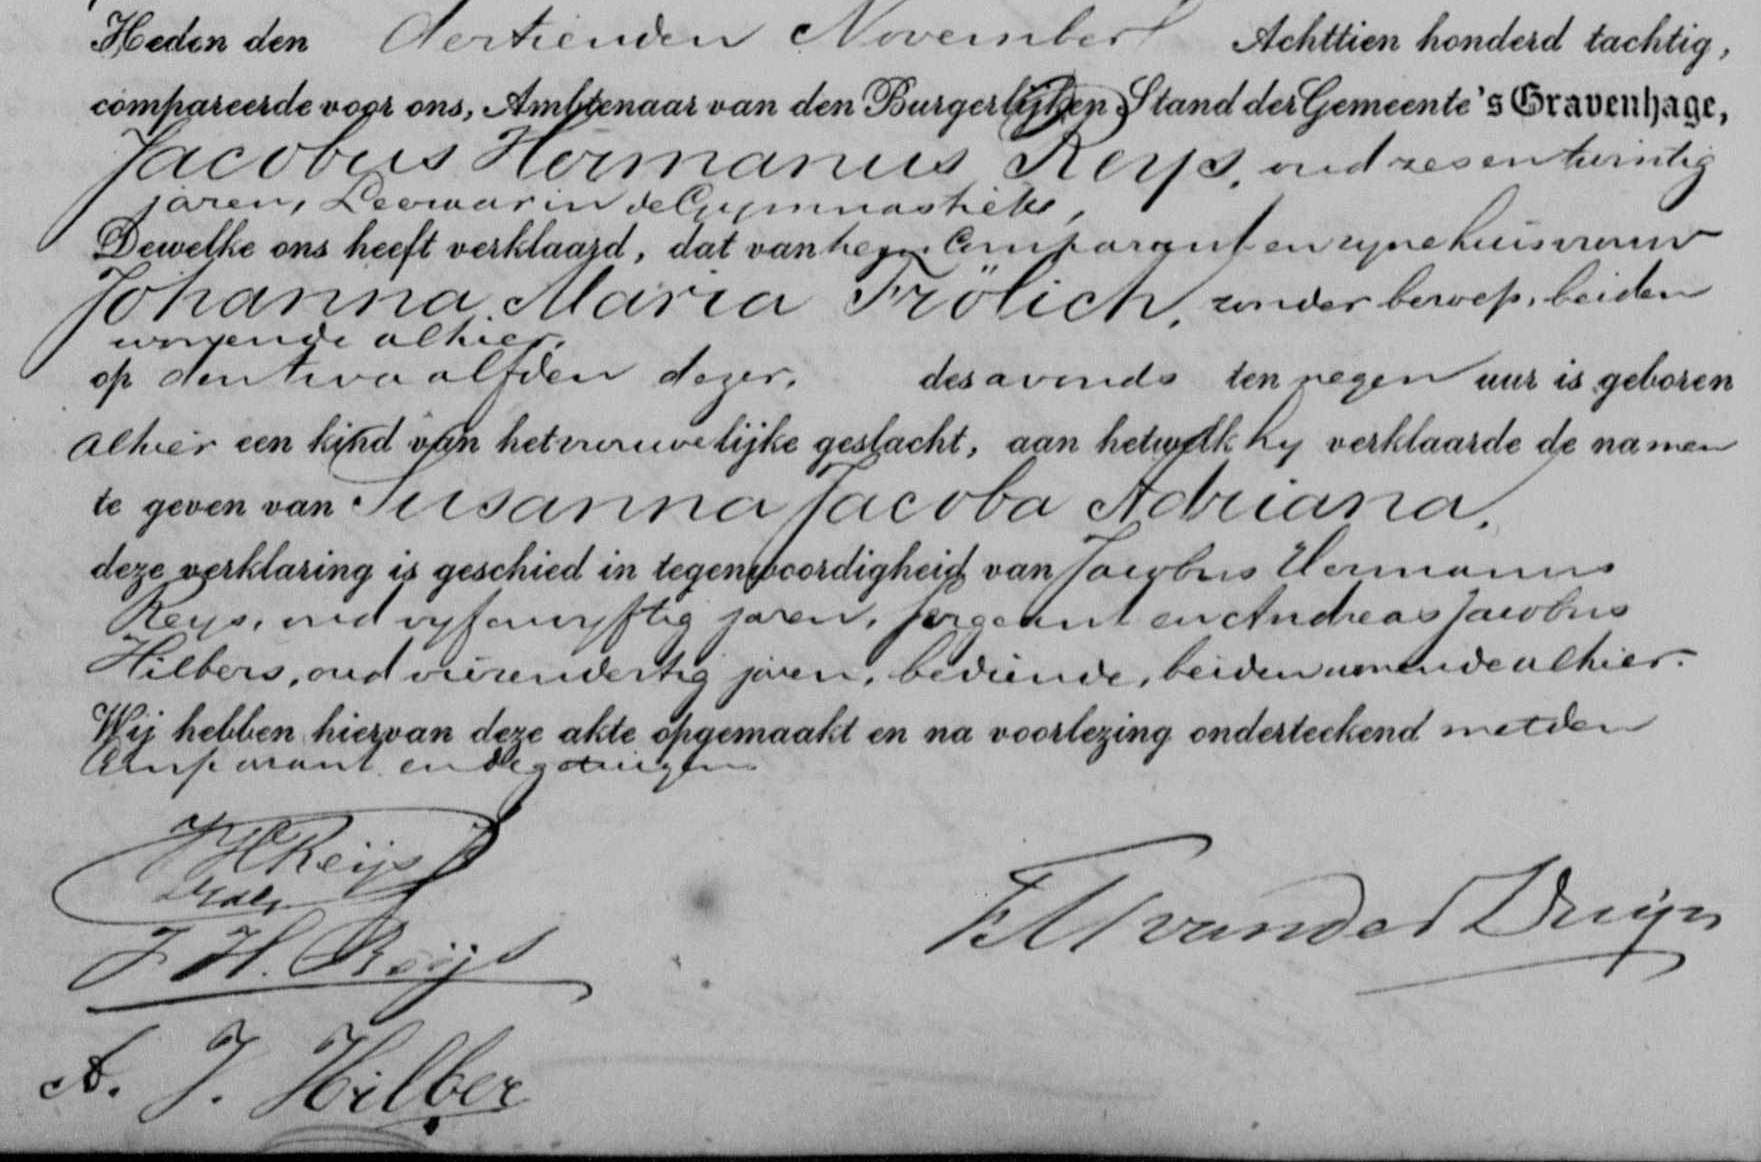 Heden den dertienden November Achttien honderd tachtig,
compareerde voor ons, Ambtenaar van den Burgerlijken Stand der Gemeente 's Gravenhage,
Jacobus Hermanus Reys, oud zesentwintig
jaren, Leeraar in de Gymnastiek,
Dewelke ons heeft verklaard, dat van hem Comparant en zyne huisvrouw
Johanna Maria Frölich, zonder beroep, beiden
wonende alhier,
op den twaalfden dezer, des avonds ten negen uur is geboren
alhier een kind van het vrouwelijke geslacht, aan hetwelk hy verklaarde de namen
te geven van Susanna Jacoba Adriana,
deze verklaring is geschied in tegenwoordigheid van Jacobus Hermanus
Reys, oud vyfenvyftig jaren, sergeant en Andreas Jacobus
Hilbers, oud vierendertig jaren, bediende, beiden wonende alhier.
Wij hebben hiervan deze akte opgemaakt en na voorlezing onderteekend met den
Comparant en de getuigen
J H Reijs
J. H. Reijs
A. J. Hilber
van der Duijn